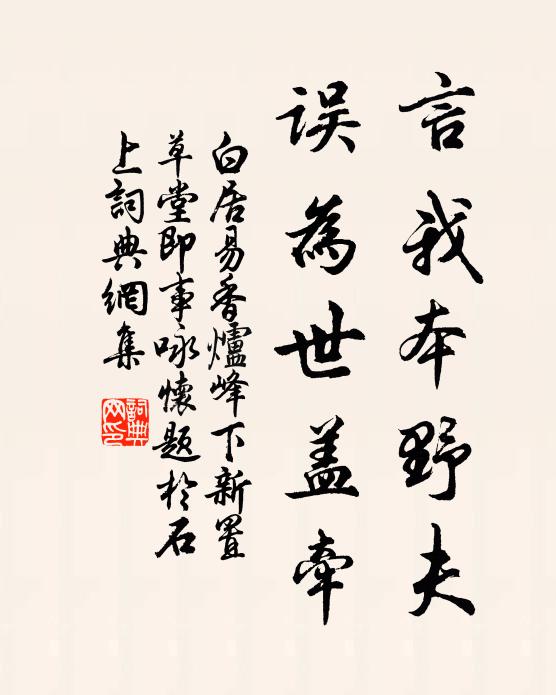 言我本野夫
誤為世盖牽
白居易香爐峰下新置
草堂即事咏懷题於石
上詞典網集
詞典
网印